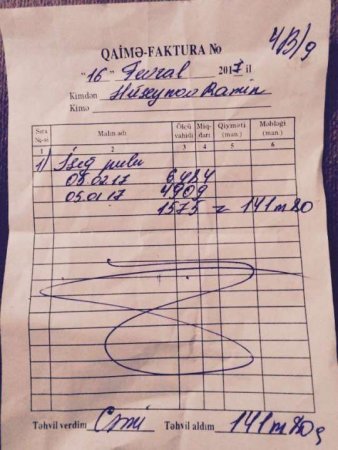 4/B/9
QAİMƏ-FAKTURA №
"16" Fevral 2017 il
Kimdən Hüseynov Ramin
Kimə
Sıra №-si Malın adı Ölçü vahidi Miqdarı Qiyməti (man.) Məbləği (man.)
1 2 3 4 5 6
1) İşıq pulu
03.02.17 6484
05.01.17 4909
1575 = 141 m 80
Təhvil verdim Təhvil aldım 141 m 80 q